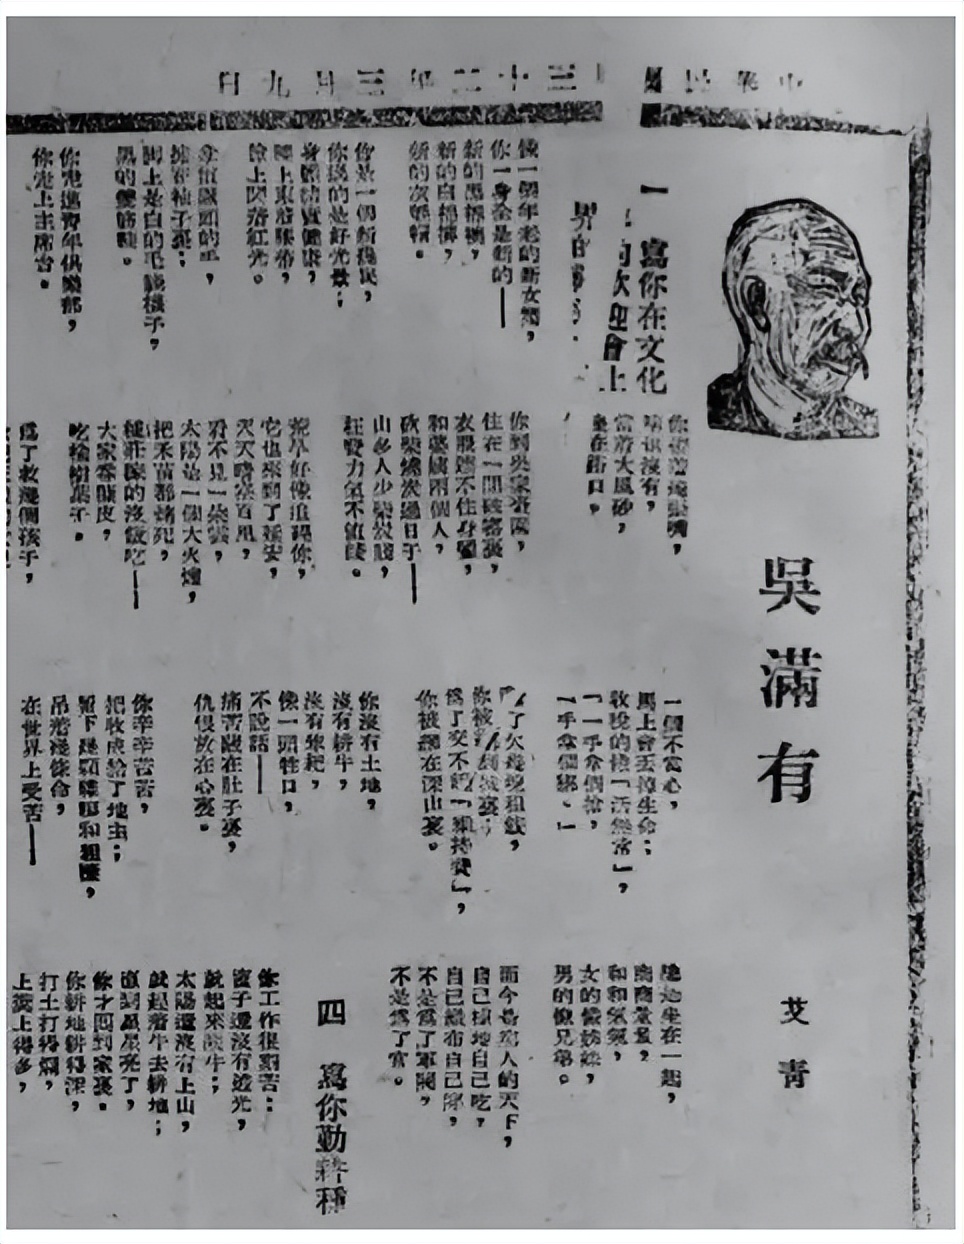 中華民國三十二年三月九日
吳滿有
艾青
一 寫你在文化
的歡迎會上
像一個年老的新女婿，
你一身全是新的——
新的黑棉襖，
新的白棉褲，
新的灰氈帽。
你是一個新農民，
你談的是好光景；
身體結實健康，
腰上束着腰帶，
臉上閃着紅光。
拿慣鋤頭的手，
搐在袖子裏；
脚上是白的毛襪樣子，
黑的雙筋鞋。
你走進青年俱樂部，
你走上主席台。
沒有，
當着大風砂，
坐在街口。
你到吳家棗園，
住在一間破窰裏，
衣服遮不住身體，
和婆姨兩個人，
砍柴燒炭過日子——
山多人少柴炭賤，
枉費力氣不值錢。
荒旱好像追趕你，
它也來到了延安，
天天晴空百里，
看不見一朵雲，
太陽是一個大火爐，
把禾苗都燒死，
種莊稼的沒飯吃——
大家吞糠皮，
吃榆樹葉子。
爲了救幾個孩子，
一個不當心，
馬上會丟掉生命；
收稅的像「活無常」，
「一手拿個槍，
一手拿個繩。」
了欠幾塊租錢，
你被到城裏；
爲了交不起「維持費」，
你被綁在深山裏。
你沒有土地，
沒有耕牛，
沒有犂耙，
像一頭牲口，
不說話——
痛苦藏在肚子裏，
仇恨放在心裏。
你辛辛苦苦，
把收成給了地主；
留下幾顆雜糧和粗糠，
吊着幾條命，
在世界上受苦——
總是坐在一起，
商商量量，
和和氣氣，
女的像姊妹，
男的像兄弟。
而今是窮人的天下，
自己種地自己吃，
自己織布自己穿，
不是爲了軍閥，
不是爲了官。
四 寫你勤耕種
你工作很刻苦：
窗子還沒有透光，
就起來餵牛；
太陽還沒有上山，
就趕着牛去耕地；
直到星星亮了，
你才回到家裏。
你耕地耕得深，
打土打得爛，
上糞上得多，